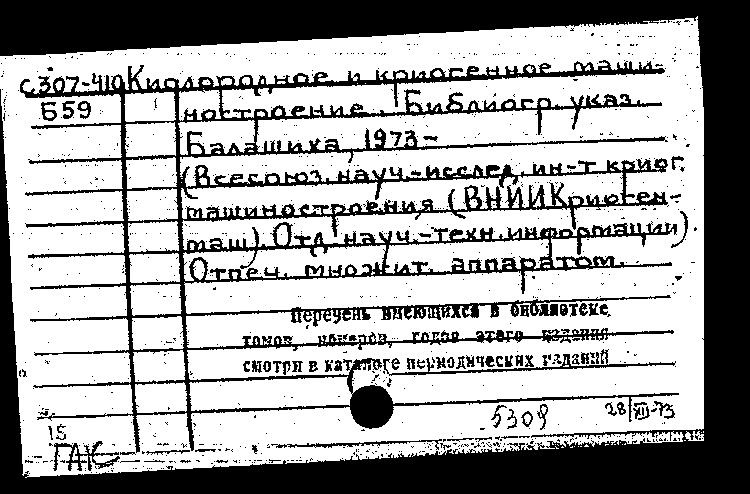 с307-410 Кислородное и криогенное маши-
Б59 ностроение. Библиогр. указ.
Балашиха, 1973-
(Всесоюз. науч.-исслед. ин-т криог.
машиностроения (ВНИИКриоген-
маш). Отд. науч.-техн. информации).
Отпеч. множит. аппаратом.
Перечень имеющихся в библиотеке
томов, номеров, годов этого издания
смотри в каталоге периодических изданий
5309 28/XII-73
15
ГАК